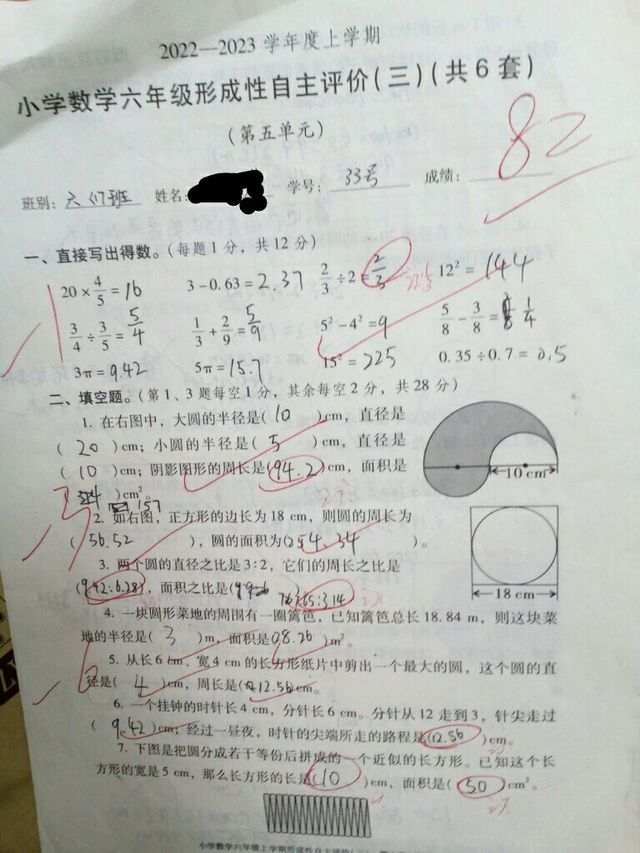 2022—2023 学年度上学期
小学数学六年级形成性自主评价(三)(共6套)
(第五单元)
82
班别: 六(7)班 姓名: 学号: 33号 成绩:
一、直接写出得数。(每题1分，共12分)
20×4/5=16 3-0.63=2.37 2/3÷2=2/3 12²=144
3/4÷3/5=5/4 1/3+2/9=5/9 5²-4²=9 5/8-3/8=1/4
3π=9.42 5π=15.7 15²=225 0.35÷0.7=0.5
二、填空题。(第1、3题每空1分，其余每空2分，共28分)
1. 在右图中，大圆的半径是(10)cm，直径是
(20)cm；小圆的半径是(5)cm，直径是
(10)cm；阴影图形的周长是(94.2)cm，面积是
( )cm². 157
10 cm
2. 如右图，正方形的边长为18 cm，则圆的周长为
(56.52)，圆的面积为(254.34)。
18 cm
3. 两个圆的直径之比是3:2，它们的周长之比是
(9.42:6.28)，面积之比是( :3.14)
4. 一块圆形菜地的周围有一圈篱笆，已知篱笆总长18.84 m，则这块菜
地的半径是(3)m，面积是(28.26)m²。
5. 从长6 cm、宽4 cm的长方形纸片中剪出一个最大的圆，这个圆的直
径是(4)cm，周长是(12.56)cm。
6. 一个挂钟的时针长4 cm，分针长6 cm。分针从12走到3，针尖走过
(9.42)cm；经过一昼夜，时针的尖端所走的路程是(12.56)cm。
7. 下图是把圆分成若干等份后拼成的一个近似的长方形。已知这个长
方形的宽是5 cm，那么长方形的长是(10)cm，面积是(50)cm²。
小学数学六年级上学期形成性自主评价(三)